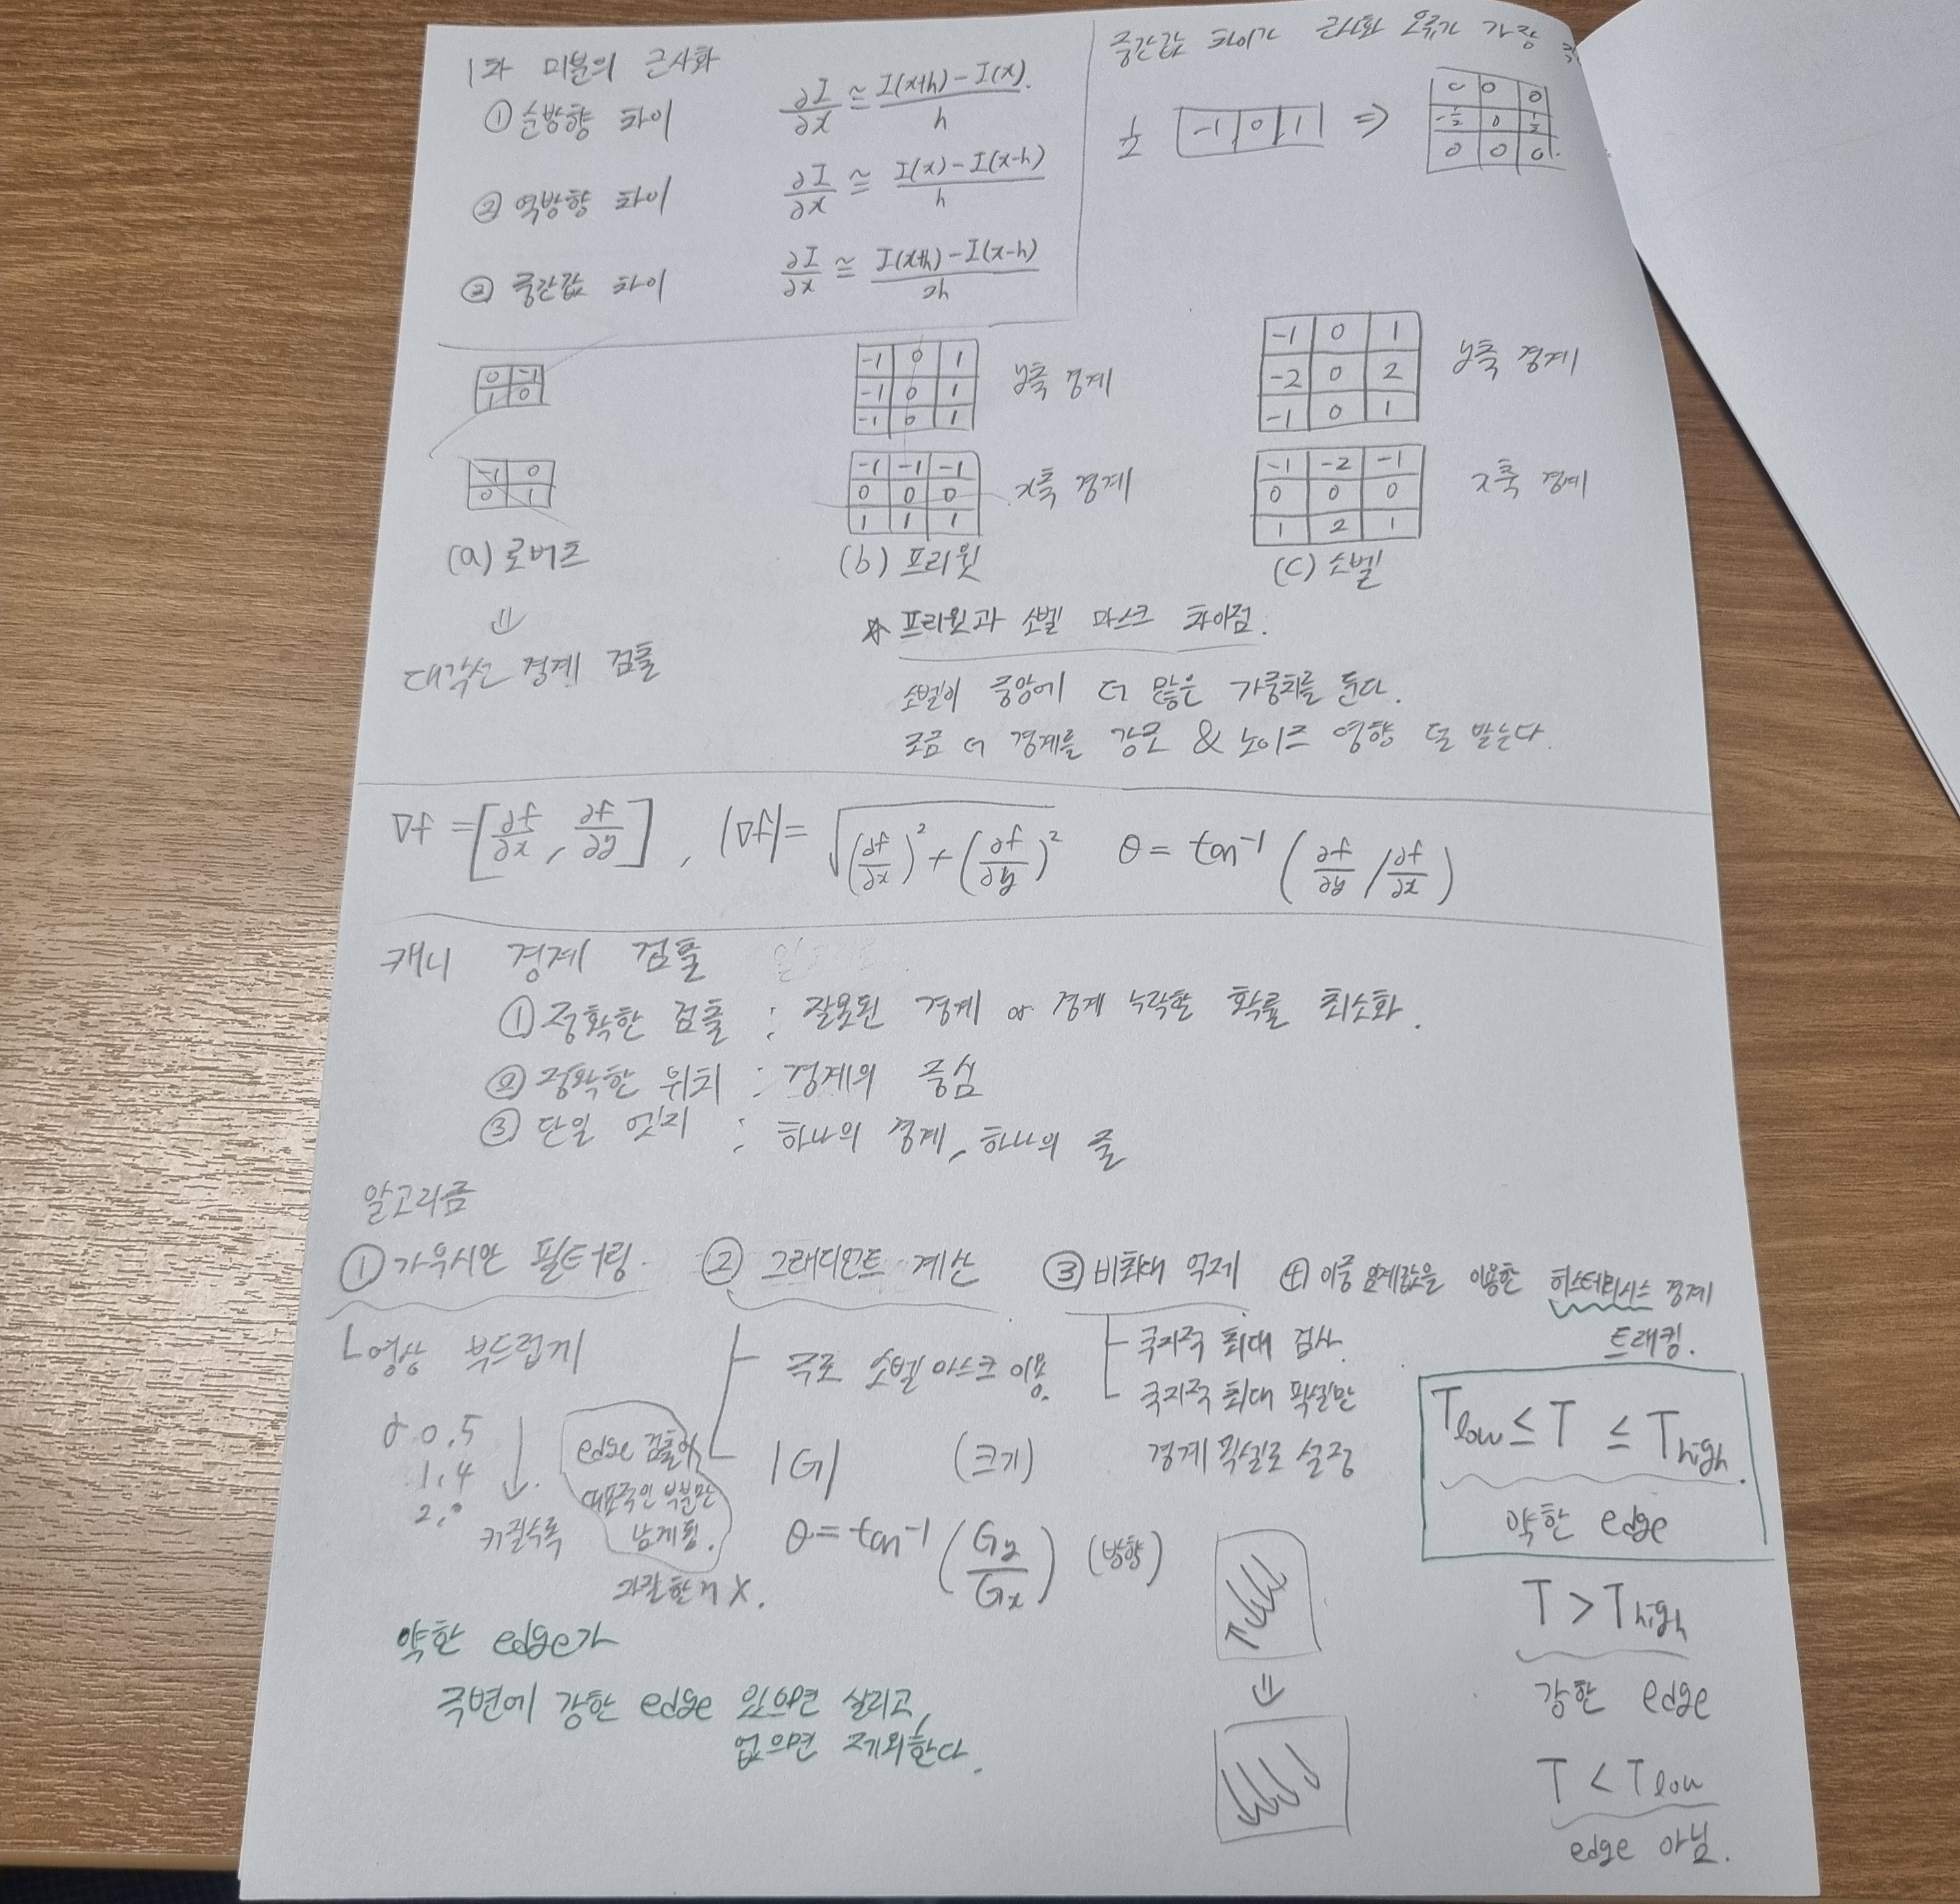 1차 미분의 근사화
① 순방향 차이 ∂I/∂x ≅ I(x+h) - I(x) / h
② 역방향 차이 ∂I/∂x ≅ I(x) - I(x-h) / h
③ 중간값 차이 ∂I/∂x ≅ I(x+h) - I(x-h) / 2h
중간값 차이가 근사화 오류가 가장
1/2 -1 0 1 ⇒
0 0 0
-1/2 0 1/2
0 0 0
0 -1
1 0
-1 0
0 1
(a) 로버츠
⇓
대각선 경계 검출
-1 0 1
-1 0 1
-1 0 1
y축 경계
-1 -1 -1
0 0 0
1 1 1
x축 경계
(b) 프리윗
-1 0 1
-2 0 2
-1 0 1
y축 경계
-1 -2 -1
0 0 0
1 2 1
x축 경계
(c) 소벨
☆ 프리윗과 소벨 마스크 차이점.
소벨이 중앙에 더 많은 가중치를 둔다.
조금 더 경계를 강조 & 노이즈 영향 덜 받는다.
∇f = [∂f/∂x, ∂f/∂y], |∇f| = √(∂f/∂x)² + (∂f/∂y)² θ = tan⁻¹(∂f/∂y / ∂f/∂x)
캐니 경계 검출
① 정확한 검출 : 잘못된 경계 or 경계 누락할 확률 최소화.
② 정확한 위치 : 경계의 중심
③ 단일 엣지 : 하나의 경계, 하나의 줄
알고리즘
① 가우시안 필터링.
영상 부드럽게
σ 0.5
1.4
2.0
↓
커질수록
edge 검출이
대표적인 부분만
남게됨.
과잘한거 X.
② 그래디언트 계산
주로 소벨 마스크 이용.
|G| (크기)
θ = tan⁻¹(Gy/Gx) (방향)
③ 비최대 억제
국지적 최대 검사.
국지적 최대 픽셀만
경계 픽셀로 설정
⇓
④ 이중 임계값을 이용한 히스테리시스 경계
트래킹.
Tlow ≤ T ≤ Thigh.
약한 edge
T > Thigh
강한 edge
T < Tlow
edge 아님.
약한 edge가
주변에 강한 edge 있으면 살리고,
없으면 제외한다.